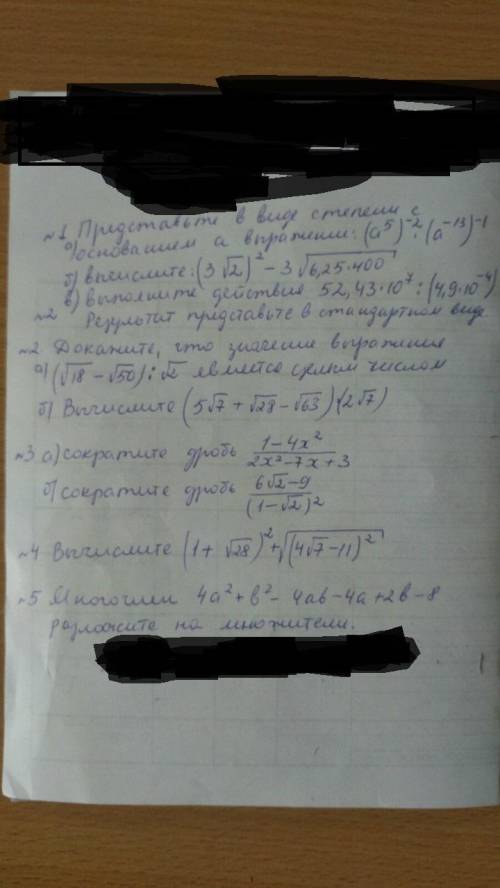 №1 Представьте в виде степени с
а) основанием а выражение: (a⁵)⁻² : (a⁻¹³)⁻¹
б) вычислите: (3√2)² − 3√6,25·400
в) выполните действия 52,43·10⁷ : (4,9·10⁻⁴)
№2 Результат представьте в стандартном виде
№2 Докажите, что значение выражения
а) (√18 − √50) : √2 является целым числом
б) Вычислите (5√7 + √28 − √63)·(2√7)
№3 а) сократите дробь (1−4x²)/(2x²−7x+3)
б) сократите дробь (6√2−9)/(1−√2)²
№4 Вычислите (1+√28)² + √(4√7−11)²
№5 Многочлен 4a²+b²−4ab−4a+2b−8
разложите на множители.